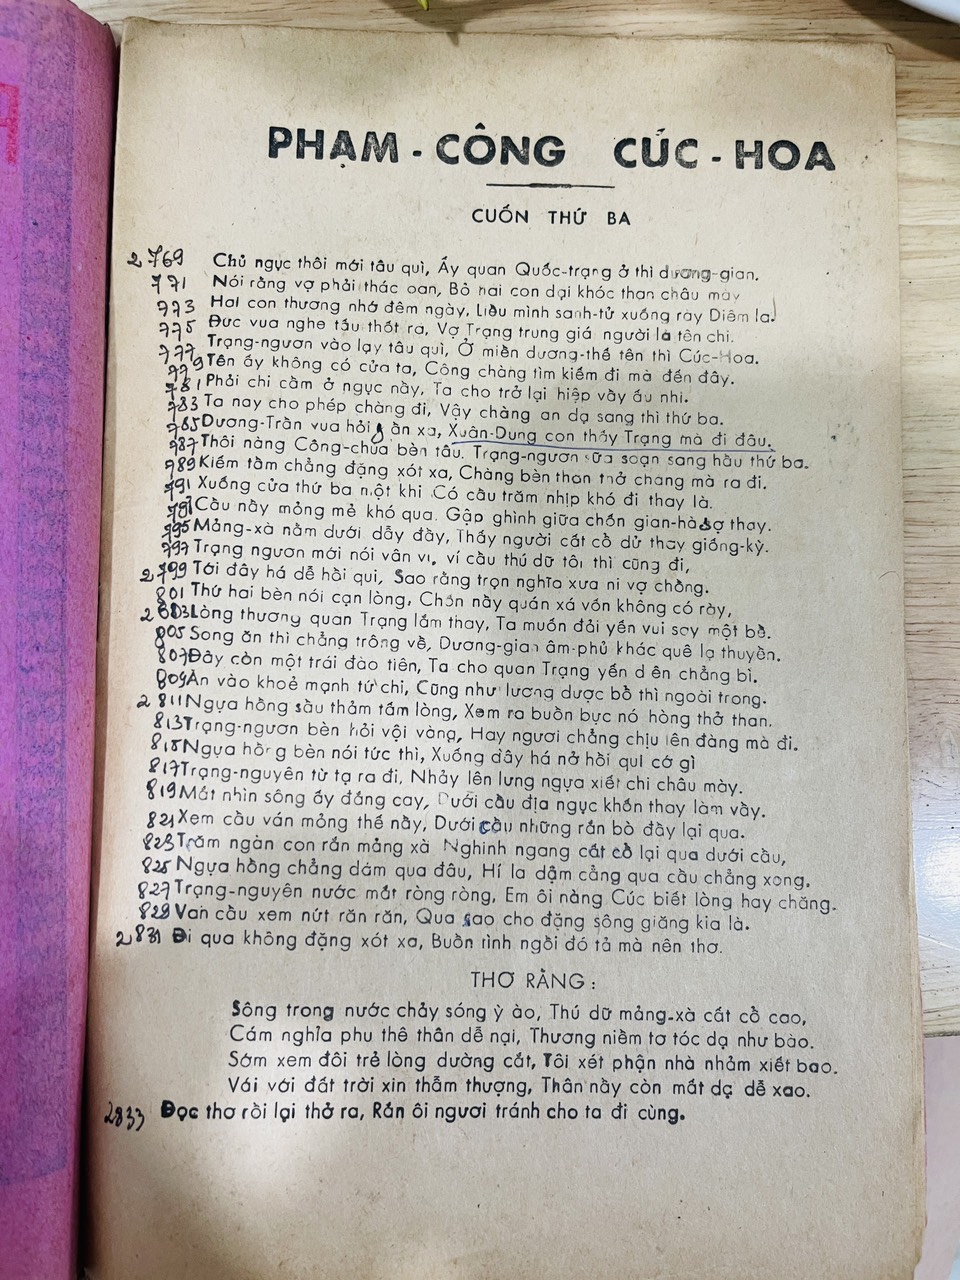 PHẠM - CÔNG CÚC - HOA
CUỐN THỨ BA
2769 Chủ ngục thôi mới tâu quì, Ấy quan Quốc-trạng ở thì dương-gian.
771 Nói rằng vợ phải thác oan, Bỏ hai con dại khóc than châu mày
773 Hai con thương nhớ đêm ngày, Liều mình sanh-tử xuống rày Diêm la.
775 Đức vua nghe tấu thốt ra, Vợ Trạng trung giá người là tên chi.
777 Trạng-ngươn vào lạy tâu quì, Ở miền dương-thế tên thì Cúc-Hoa.
779 Tên ấy không có cửa ta, Công chàng tìm kiếm đi mà đến đây.
781 Phải chi cầm ở ngục nầy, Ta cho trở lại hiệp vầy âu nhi.
783 Ta nay cho phép chàng đi, Vậy chàng an dạ sang thì thứ ba.
785 Dương-Trần vua hỏi gần xa, Xuân-Dung con thầy Trạng mà đi đâu.
787 Thôi nàng Công-chúa bèn tâu. Trạng-ngươn sữa soạn sang hầu thứ ba.
789 Kiếm tầm chẳng đặng xót xa, Chàng bèn than thở chang mà ra đi.
791 Xuống cửa thứ ba một khi Có cầu trăm nhịp khó đi thay là.
793 Cầu nầy mỏng mẻ khó qua. Gập ghình giữa chốn gian-hà sợ thay.
795 Mảng-xà nằm dưới dẫy đầy, Thấy người cất cổ dử thay giống-kỳ.
797 Trạng ngươn mới nói vân vi, ví cầu thú dữ tôi thì cũng đi,
2799 Tới đây há dễ hồi qui, Sao rằng trọn nghĩa xưa ni vợ chồng.
801 Thứ hai bèn nói cạn lòng, Chốn nầy quán xá vốn không có rày,
2803 Lòng thương quan Trạng lắm thay, Ta muốn đải yến vui say một bề.
805 Song ăn thì chẳng trông về, Dương-gian âm-phủ khác quê lạ thuyền.
807 Đây còn một trái đào tiên, Ta cho quan Trạng yến diên chẳng bì.
809 Ăn vào khoẻ mạnh tứ chi, Cũng như lương dược bổ thì ngoài trong.
2811 Ngựa hồng sầu thảm tấm lòng, Xem ra buồn bực nó hòng thở than.
813 Trạng-ngươn bèn hỏi vội vàng, Hay ngươi chẳng chịu lên đàng mà đi.
815 Ngựa hồng bèn nói tức thì, Xuống đây há nở hồi qui cớ gì
817 Trạng-nguyên từ tạ ra đi, Nhảy lên lưng ngựa xiết chi châu mày.
819 Mắt nhìn sông ấy đắng cay, Dưới cầu địa ngục khốn thay làm vầy.
821 Xem cầu ván mỏng thế nầy, Dưới cầu những rắn bò đầy lại qua.
823 Trăm ngàn con rắn mảng xà Nghinh ngang cất cổ lại qua dưới cầu,
825 Ngựa hồng chẳng dám qua đâu, Hí la dậm cẳng qua cầu chẳng xong.
827 Trạng-nguyên nước mắt ròng ròng, Em ôi nàng Cúc biết lòng hay chăng.
829 Van cầu xem nứt răn răn, Qua sao cho đặng sông giăng kia là.
2831 Đi qua không đặng xót xa, Buồn tình ngồi đó tả mà nên thơ.
THƠ RẰNG :
Sông trong nước chảy sóng ỳ ào, Thú dữ mảng-xà cất cổ cao,
Cám nghỉa phu thê thân dễ nại, Thương niềm tơ tóc dạ như bào.
Sớm xem đôi trẻ lòng dường cắt, Tôi xét phận nhà nhảm xiết bao.
Vái với đất trời xin thẩm thượng, Thân nầy còn mất dạ dễ xao.
2833 Đọc thơ rồi lại thở ra, Rắn ôi ngươi tránh cho ta đi cùng.